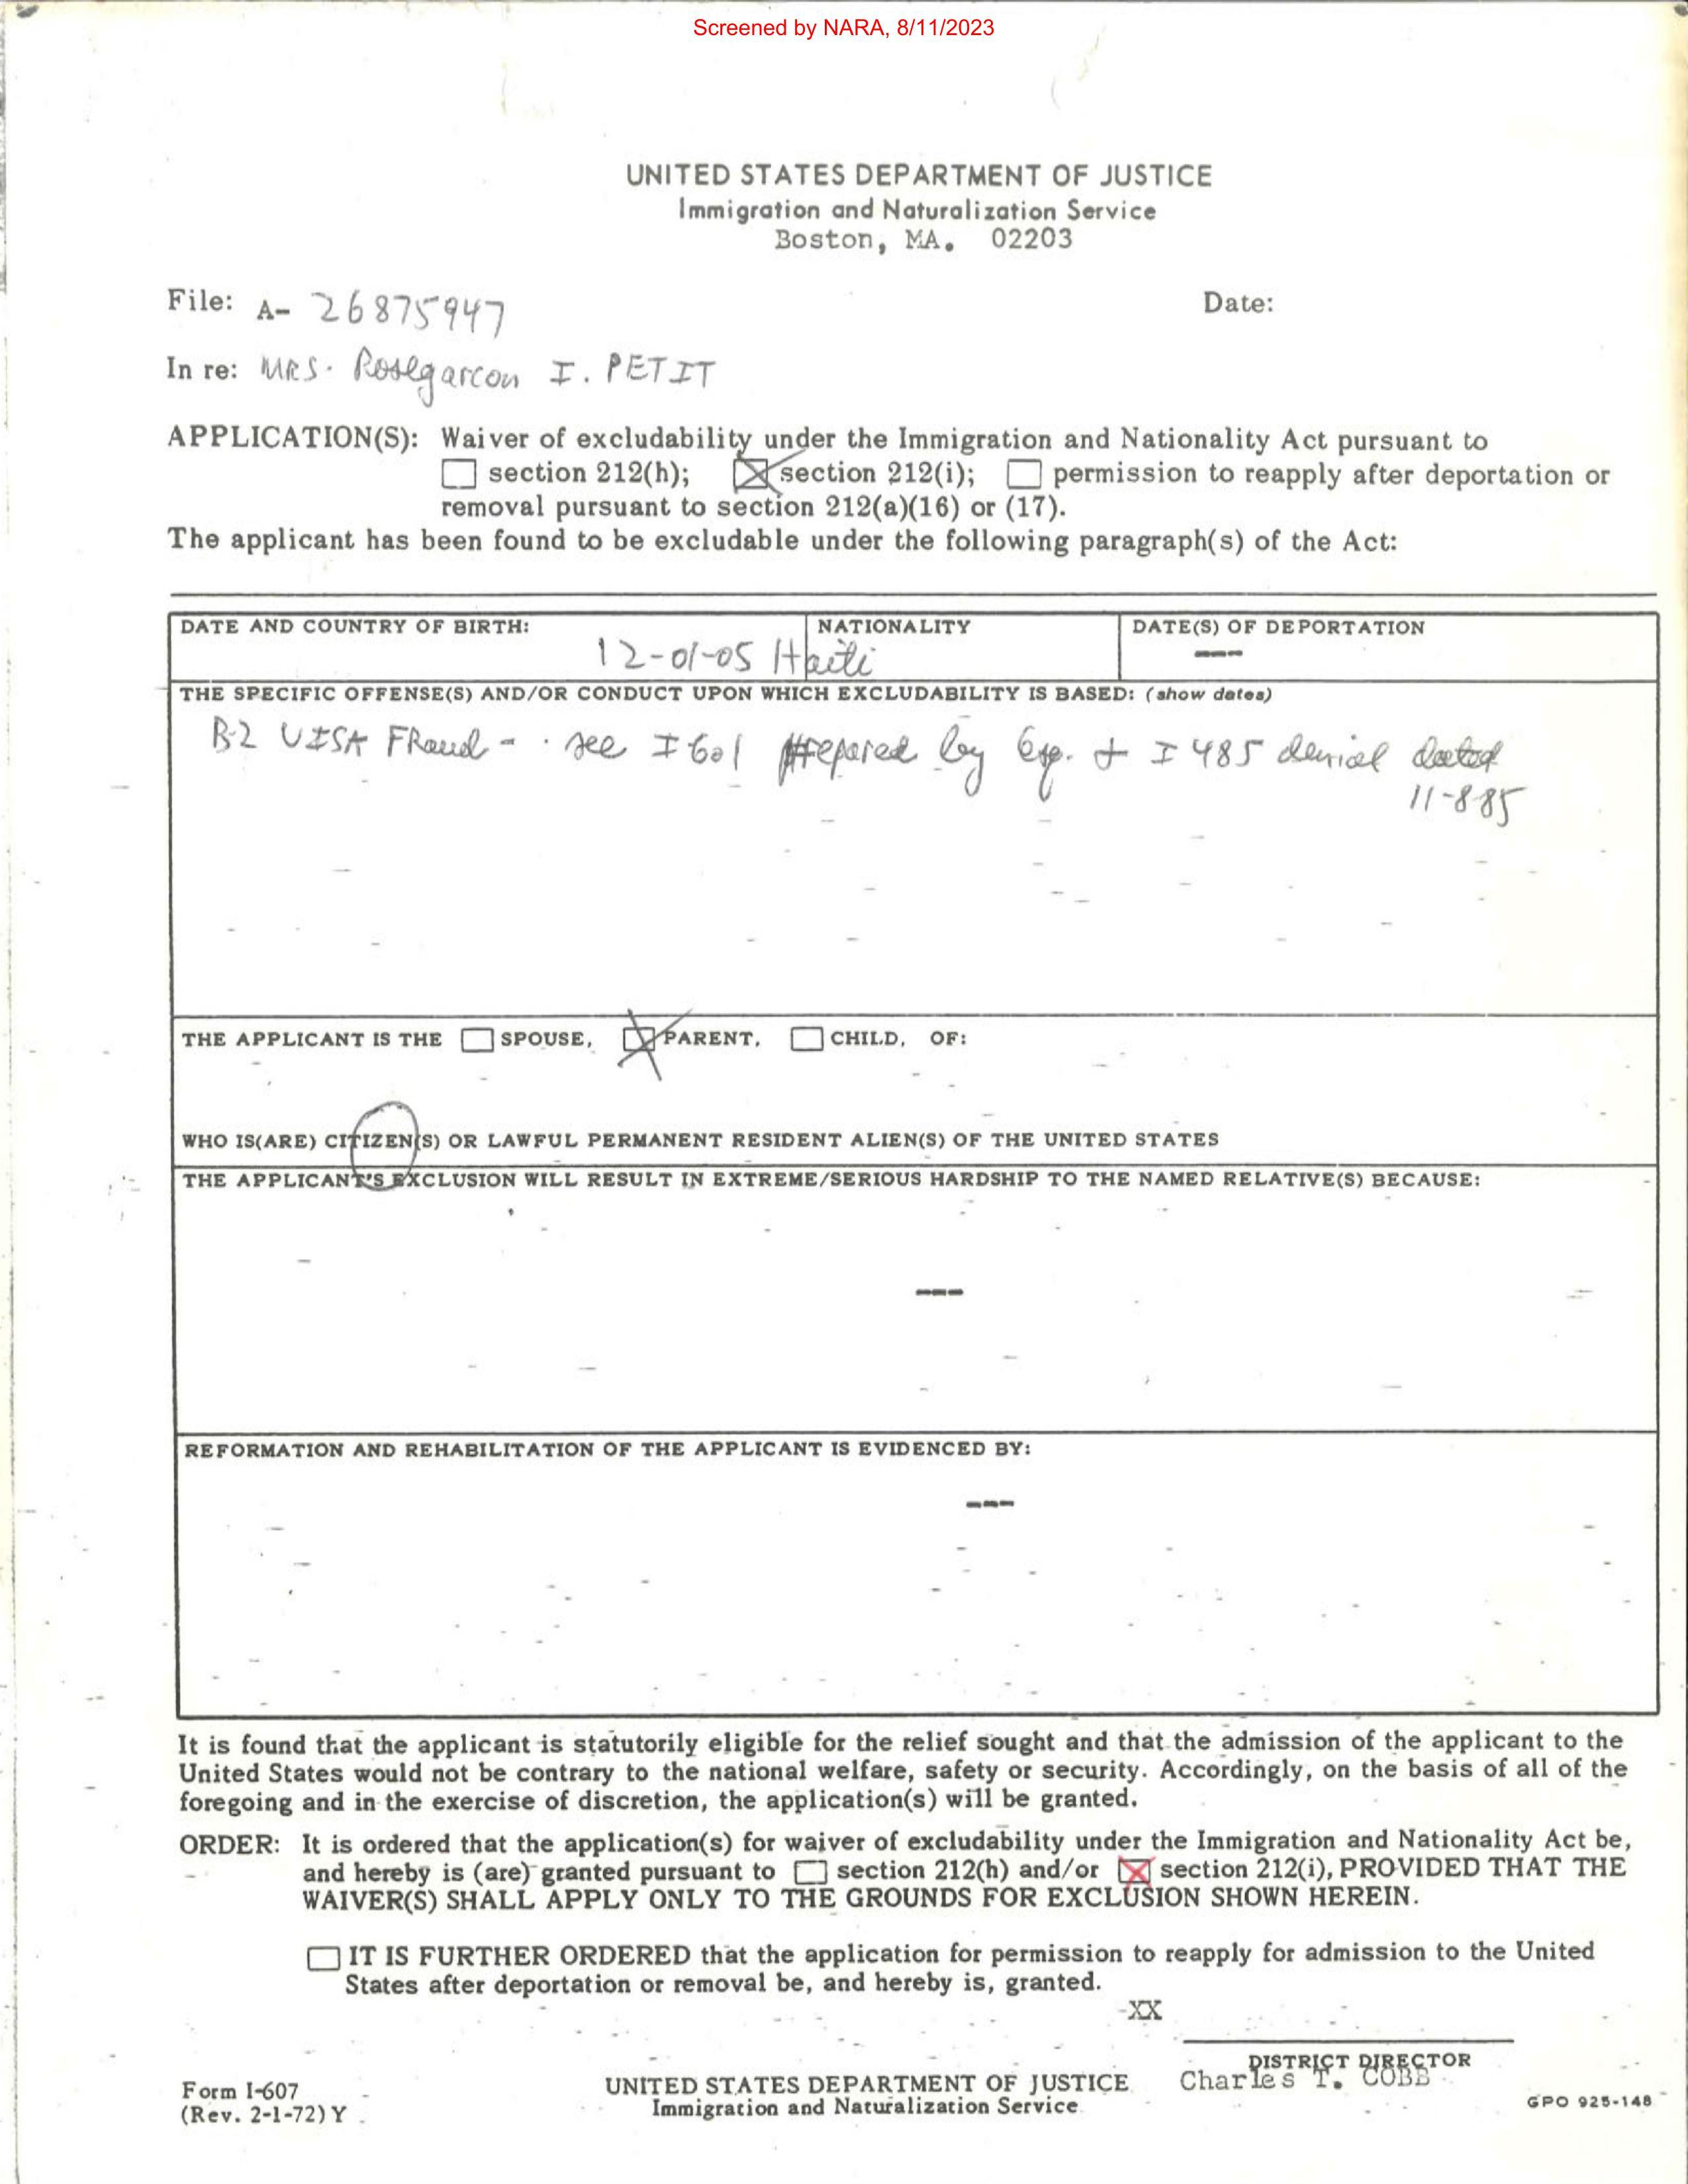 Screened by NARA, 8/11/2023
UNITED STATES DEPARTMENT OF JUSTICE
Immigration and Naturalization Service
Boston, MA. 02203
File: A- 26875947
Date:
In re: MRS. Rosegarcon I. PETIT
APPLICATION(S): Waiver of excludability under the Immigration and Nationality Act pursuant to
section 212(h); section 212(i); permission to reapply after deportation or
removal pursuant to section 212(a)(16) or (17).
The applicant has been found to be excludable under the following paragraph(s) of the Act:
DATE AND COUNTRY OF BIRTH: NATIONALITY DATE(S) OF DEPORTATION
12-01-05 Haiti ---
THE SPECIFIC OFFENSE(S) AND/OR CONDUCT UPON WHICH EXCLUDABILITY IS BASED: (show dates)
B-2 VISA FRaud - . see I 601 prepared by & I 485 denial dated
11-8-85
THE APPLICANT IS THE SPOUSE, PARENT, CHILD, OF:
WHO IS(ARE) CITIZEN(S) OR LAWFUL PERMANENT RESIDENT ALIEN(S) OF THE UNITED STATES
THE APPLICANT'S EXCLUSION WILL RESULT IN EXTREME/SERIOUS HARDSHIP TO THE NAMED RELATIVE(S) BECAUSE:
---
REFORMATION AND REHABILITATION OF THE APPLICANT IS EVIDENCED BY:
---
It is found that the applicant is statutorily eligible for the relief sought and that the admission of the applicant to the
United States would not be contrary to the national welfare, safety or security. Accordingly, on the basis of all of the
foregoing and in the exercise of discretion, the application(s) will be granted.
ORDER: It is ordered that the application(s) for waiver of excludability under the Immigration and Nationality Act be,
and hereby is (are) granted pursuant to section 212(h) and/or section 212(i), PROVIDED THAT THE
WAIVER(S) SHALL APPLY ONLY TO THE GROUNDS FOR EXCLUSION SHOWN HEREIN.
IT IS FURTHER ORDERED that the application for permission to reapply for admission to the United
States after deportation or removal be, and hereby is, granted.
-XX
DISTRICT DIRECTOR
Charles T. COBB
Form I-607
(Rev. 2-1-72) Y
UNITED STATES DEPARTMENT OF JUSTICE
Immigration and Naturalization Service
GPO 925-148